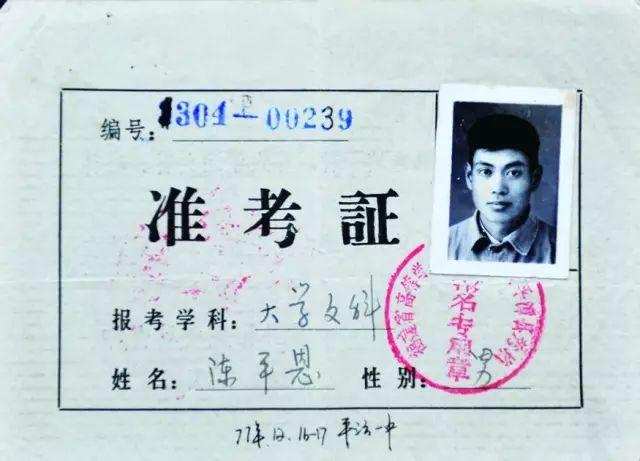 编号：1304-00239
准考証
报考学科：大学文科
姓名：陈平恩 性别：男
福建省高等学
报名专用章
77年.12.16-17 平潭一中